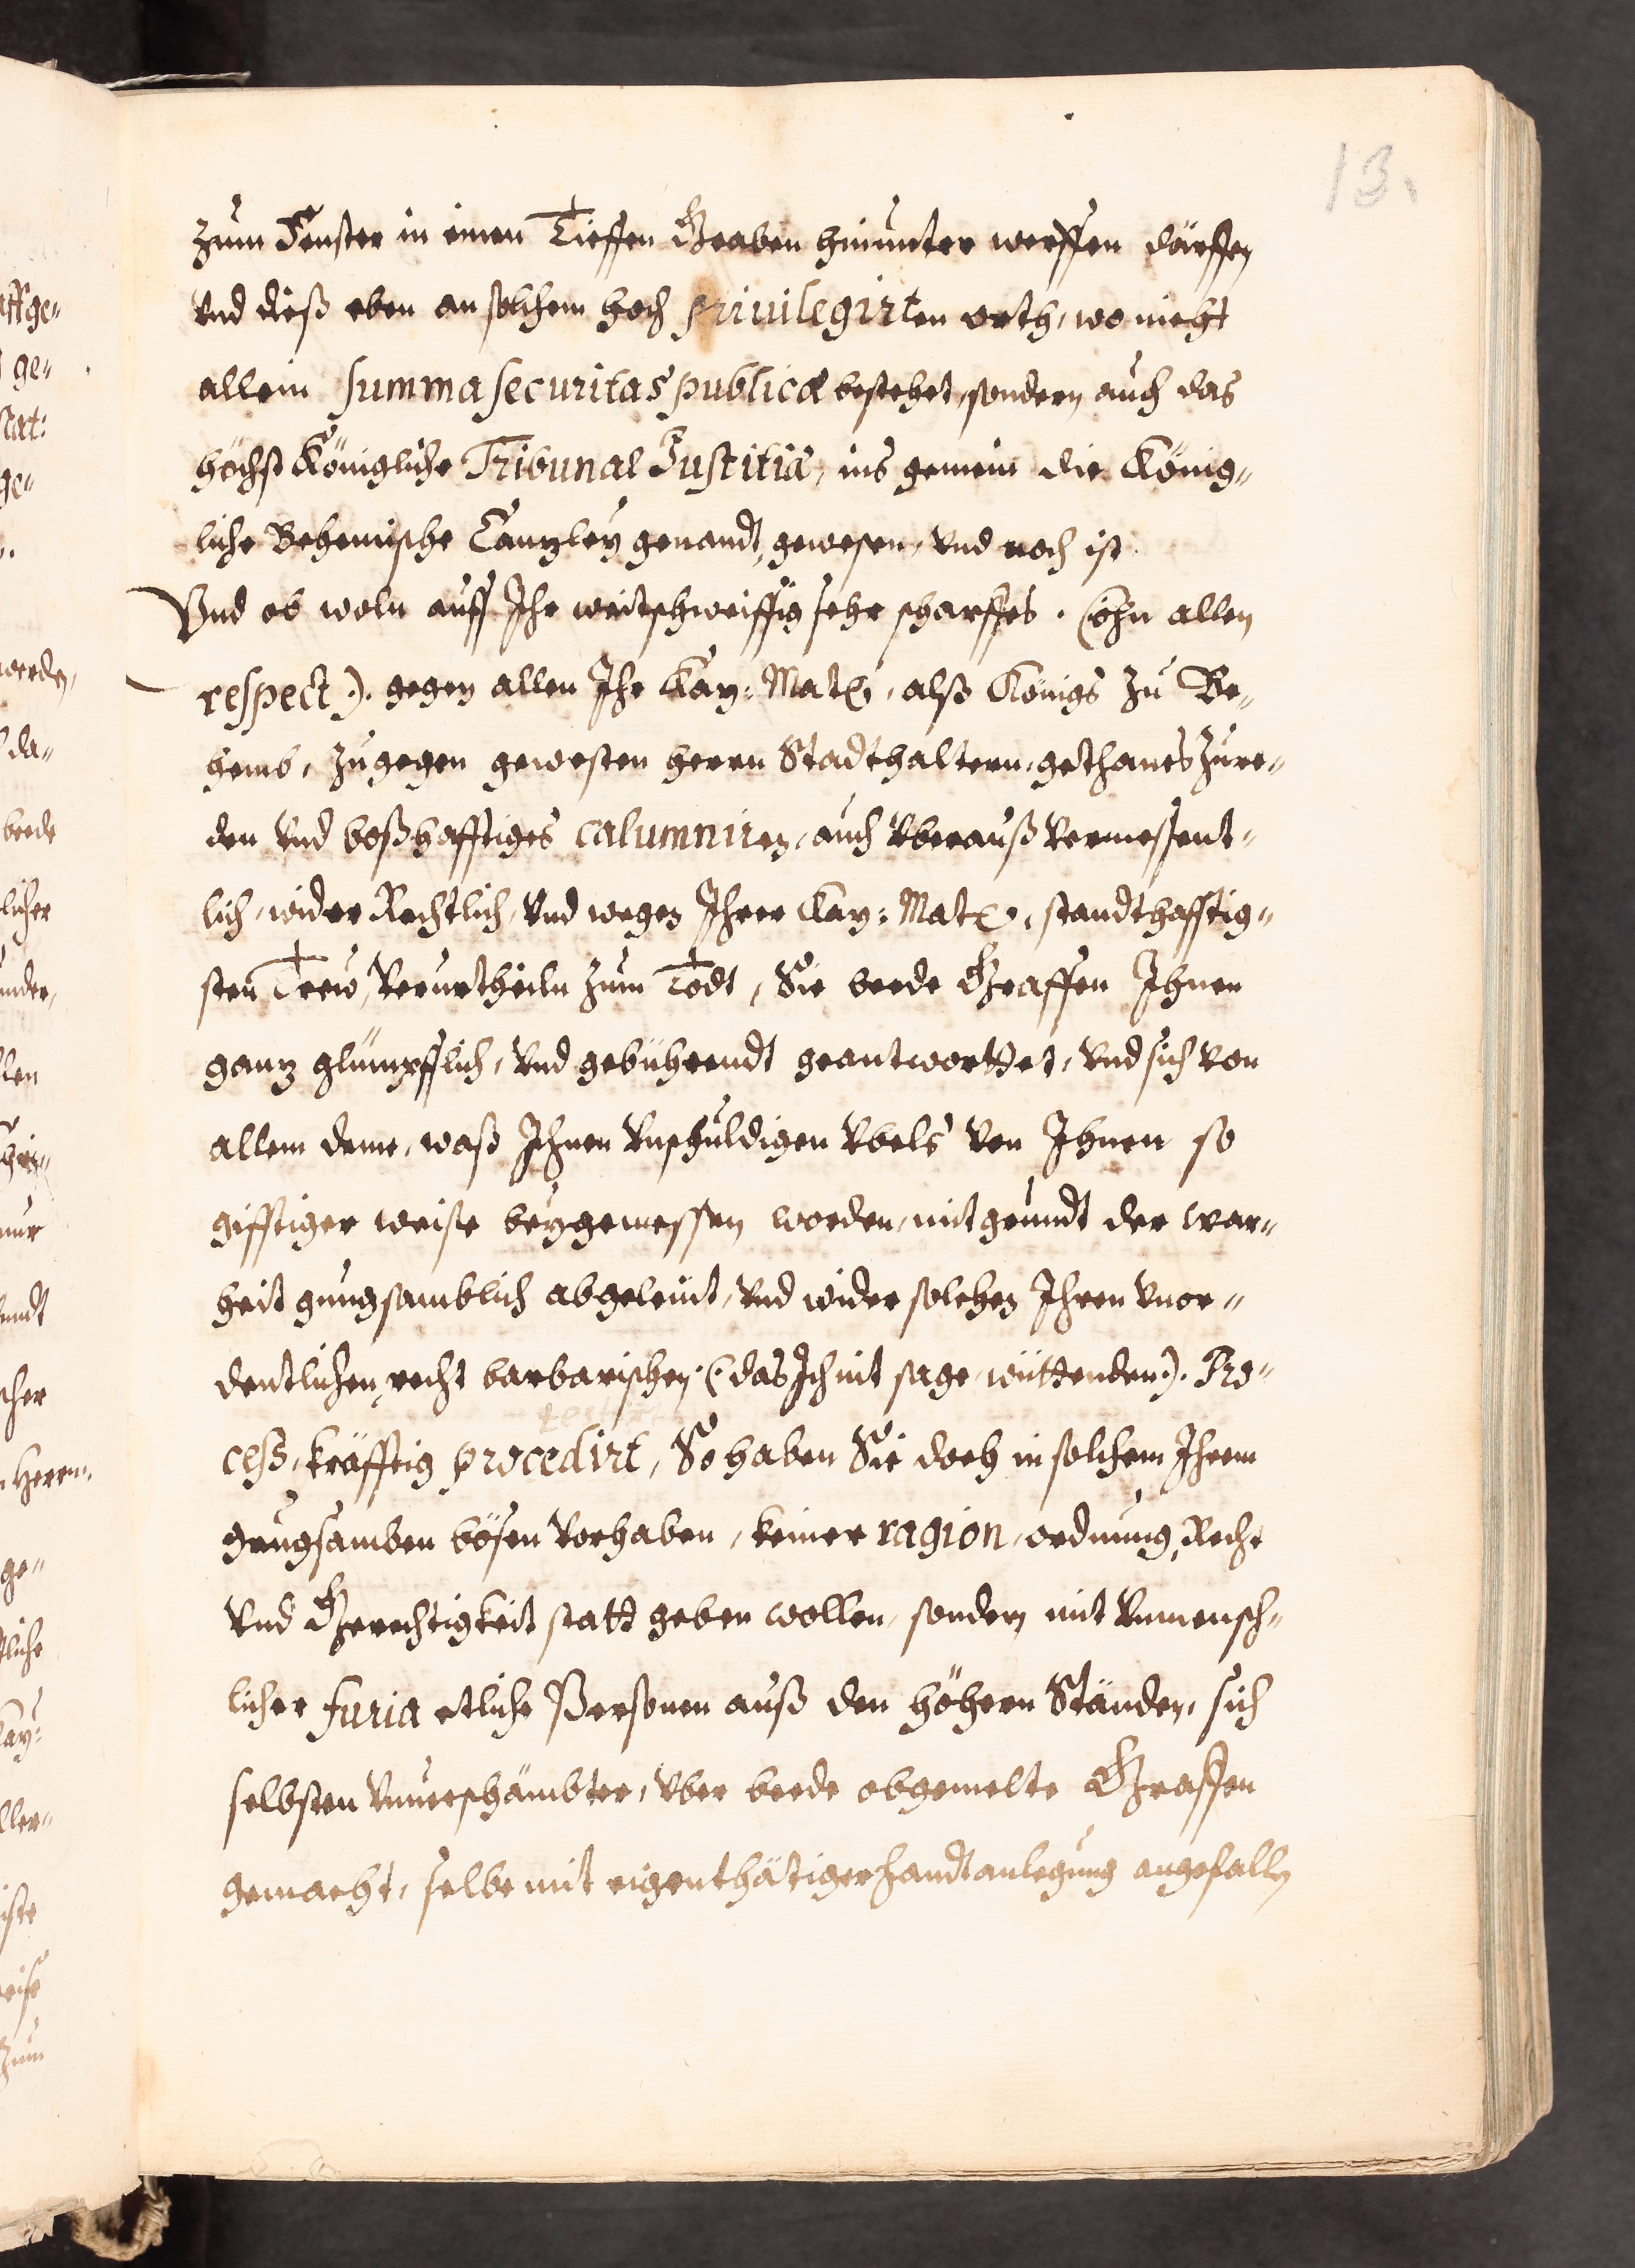 13.
zum Fenster in einen Tieffen Graben hinunter werffen därffen
vnd dieß eben an solchem hoch priuilegirten orth, wo nicht
allein summa securitas publica bestehet, sondern auch das
höchst Königliche Tribunal Justitiæ, ins gemein die König„
liche Behemische Canzley genandt, gewesen, vnd noch ist.
Vnd ob woln auff Ihr weitschweiffig sehr scharffes. (ohn allen
respect). gegen allen Ihr Kay: Matt:, alß Königs zu Be„
hemb, zugegen gewesten herrn Stadthaltern, gethanes Zure„
den vnd boßhafftiges calumniren, auch vberauß vermessent„
lich, wider Rechtlich, vnd wegen Ihrer Kay: Matt:, standthafftig„
sten Trew, verurtheiln zum Todt, Sie beede Graffen Ihnen
ganz glümpfflich, vnd gebührendt geantworttet, vnd sich von
allem deme, waß Ihnen vnschuldigen vbels von Ihnen so
gifftiger weise beygemessen worden, mit grundt der war„
heit gnugsamblich abgeleint, vnd wider solchen Ihren vnor„
dentlichen, recht barbarischen (das Ich nit sage wüttenden). Pro„
cess, kräfftig procedirt, So haben Sie doch in solchem Ihrem
grugsamben bösen vorhaben, keiner ragion, ordnung, Recht
vnd Gerechtigkeit statt geben wollen, sondern mit vnmensch„
licher furia etliche Personen auß den höhern Ständen, sich
selbsten vnuerschämbter, vber beede obgemelte Graffen
gemacht, selbe mit eigenthätiger handtanlegung angefallen